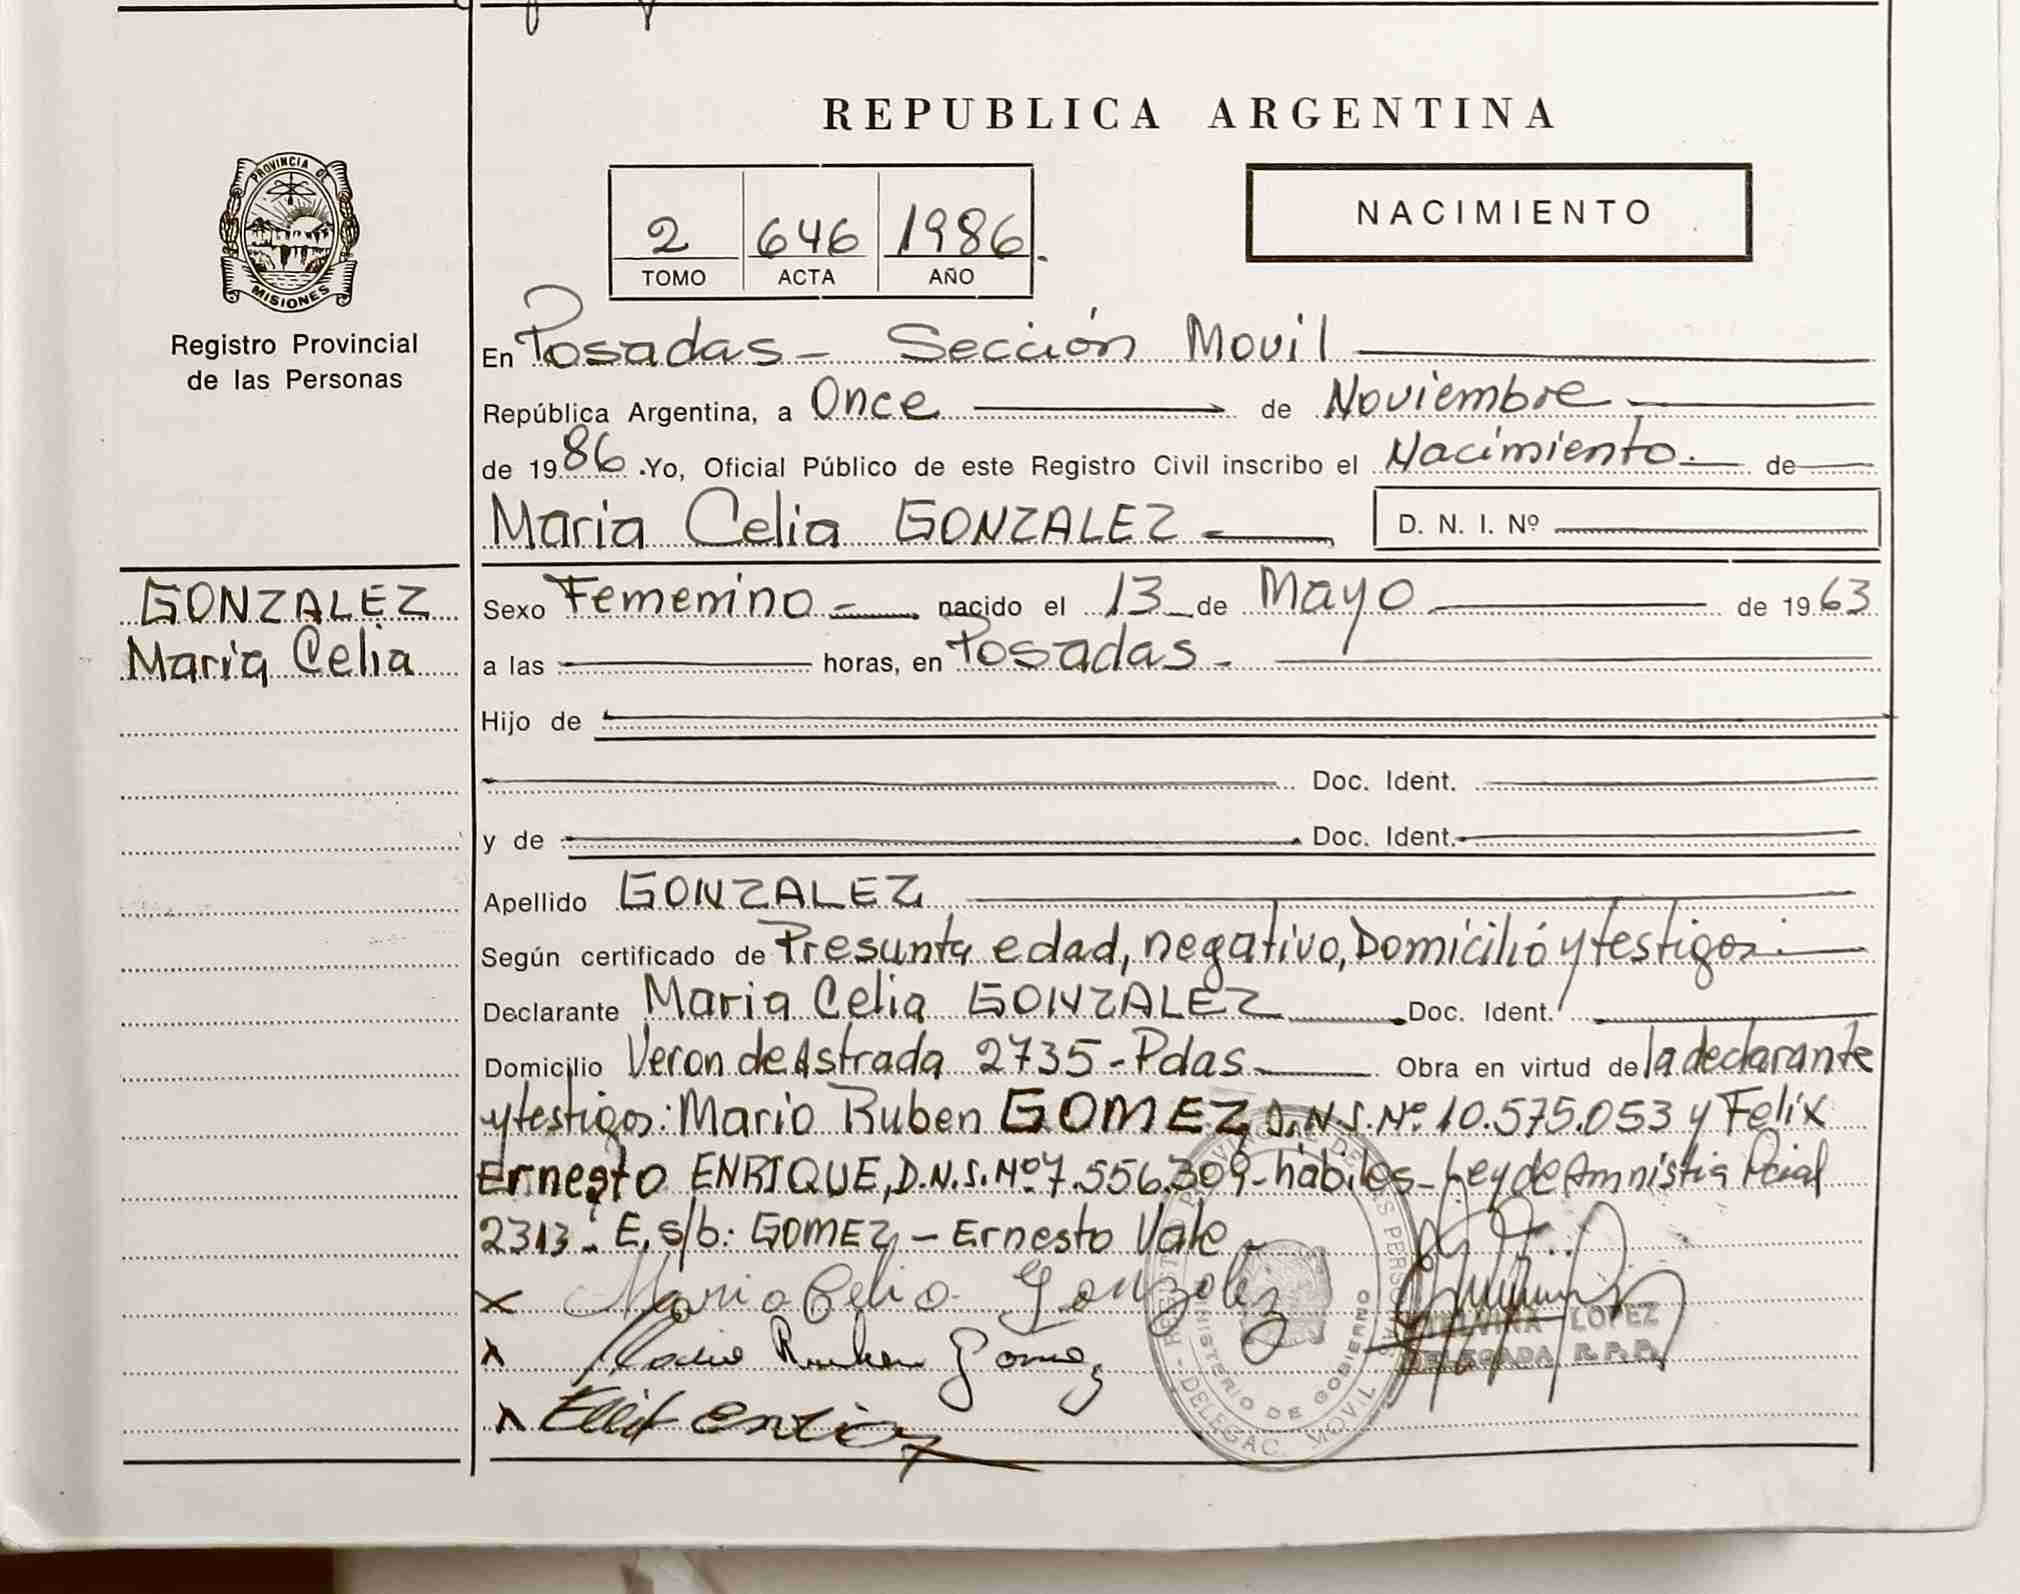 REPUBLICA ARGENTINA
PROVINCIA DE
MISIONES
Registro Provincial
de las Personas
2 646 1986.
TOMO ACTA AÑO
NACIMIENTO
En Posadas - Sección Movil
República Argentina, a Once de Noviembre
de 1986. Yo, Oficial Público de este Registro Civil inscribo el Nacimiento. de
Maria Celia GONZALEZ D. N. I. Nº
GONZALEZ
Maria Celia
Sexo Femenino - nacido el 13 de Mayo de 1963
a las horas, en Posadas -
Hijo de
Doc. Ident.
y de Doc. Ident.
Apellido GONZALEZ
Según certificado de Presunta edad, negativo, Domicilió y testigos.-
Declarante Maria Celia GONZALEZ Doc. Ident.
Domicilio Veron de Astrada 2735 - Pdas Obra en virtud de la declarante
y testigos: Mario Ruben GOMEZ D.N.I. Nº 10.575.053 y Felix
Ernesto ENRIQUE, D.N.I. Nº 7.556.309 - hábiles - Ley de Amnistia Pcial
2313 - E. s/b: GOMEZ - Ernesto Vale -
x Maria Celia Gonzalez
x Mario Ruben Gomez
x
LOPEZ
DELEGADA R.P.P.
MINISTERIO DE GOBIERNO
DELEGAC. MOVIL